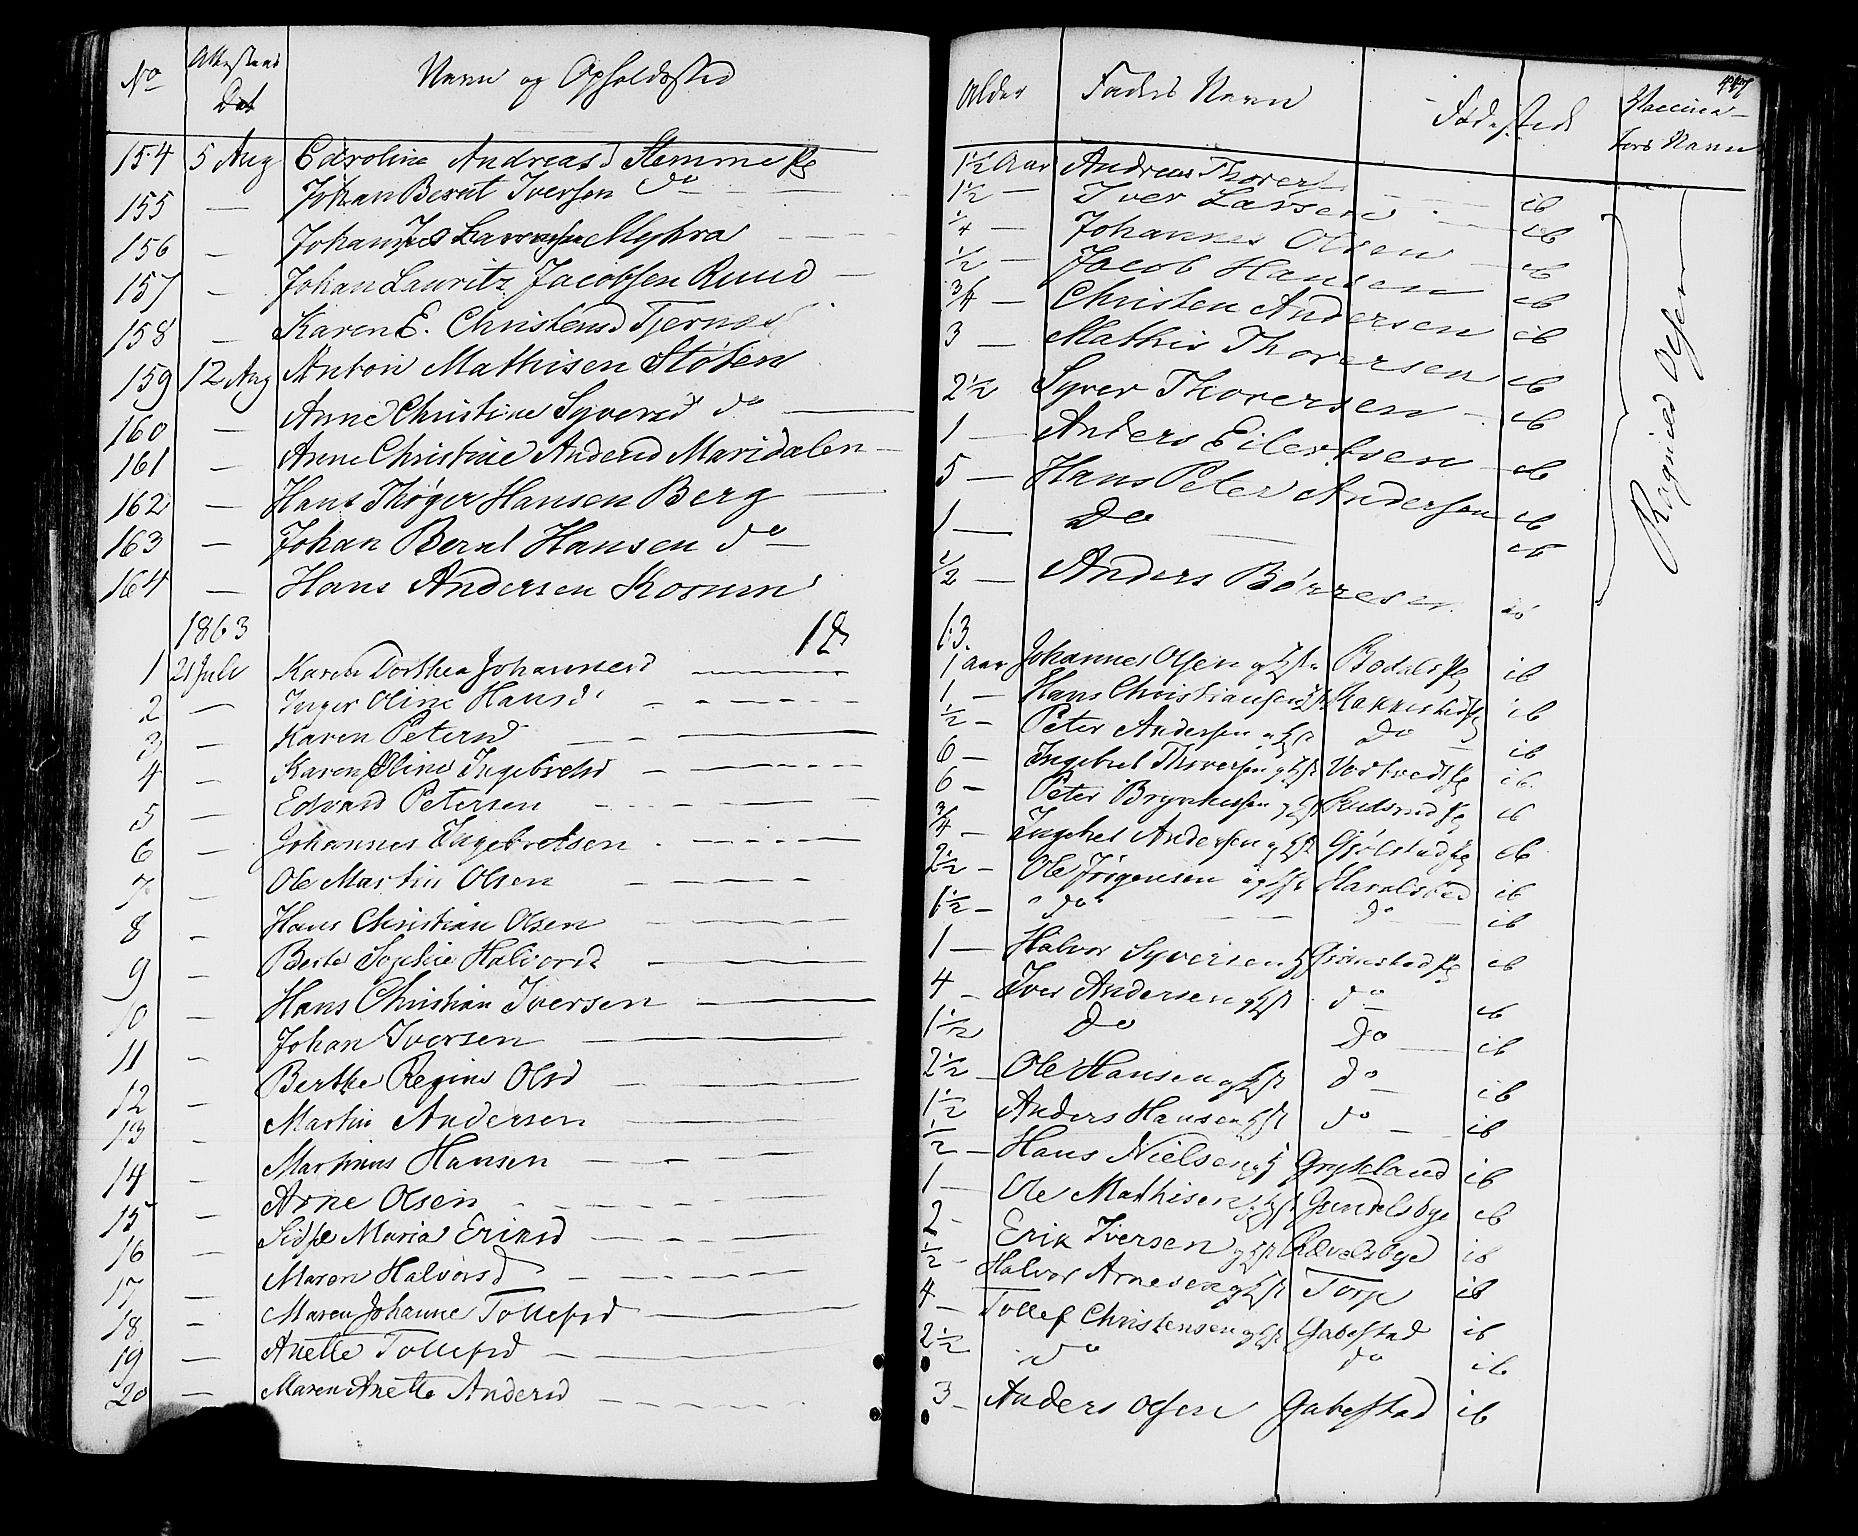 No Attestens Dat Navn og Opholdssted Alder Faders Navn Fødested Vaccina-
tors Navn
154 5 Aug Caroline Andreasd Stemme 1½ Aar Andreas Thorers
155 — Johan Bernt Iversen do 1½ — Iver Larsen ib
156 — Johannes Myhra ¼ — Johannes Olsen ib
157 — Johan Lauritz Jacobsen Ruud ½ — Jacob Hansen ib
158 — Karen E. Christensd Tjernæs ¾ — Christen Andersen ib
159 12 Aug Anton Mathisen Støten 3 — Mathis Thorersen ib
160 — Anne Christine Syversd do 2½ Syver Thorersen ib
161 — Anne Christine Andersd Maridalen 1 — Anders Eilertsen ib
162 — Hans Thøger Hansen Berg 5 — Hans Peter Andersen ib
163 — Johan Bernt Hansen do 1 — Do ib
164 — Hans Andersen Kornm ½ — Anders Børresen ib
Ragnild Olsen
1863
1 21 Juli Karen Dorthea Johannesd 1 Aar Johannes Olsen ib
2 — Inger Oline Hansd 1 — Hans Christiansen ib
3 — Karen Petersd ½ — Peter Andersen Do ib
4 — Karen Oline Ingebretsd 6 — Ingebret Thoresen ib
5 — Edvard Petersen 6 — Peter Brynhessen ib
6 — Johannes Ingebretsen ¾ — Ingebret Andersen ib
7 — Ole Martin Olsen 2½ — Ole Jørgensen Haralstad ib
8 — Hans Christian Olsen 1½ — do do ib
9 — Berte Sophie Halvorsd 1 — Halvor Syversen Grimstad ib
10 — Hans Christian Iversen 4 — Iver Andersen do ib
11 — Johan Iversen 1½ Do Do ib
12 — Berthe Regine Olsd 2½ — Ole Hansen do ib
13 — Martin Andersen 1½ Anders Hansen do ib
14 — Martinus Hansen ½ — Hans Nielsen Grykeland ib
15 — Arne Olsen 1 — Ole Mathisen Gundelsbye ib
16 — Sidse Maria Eriksd 2 — Erik Iversen ib
17 — Maren Halvorsd ½ — Halvor Arnesen Torp ib
18 — Maren Johanne Tollefsd 4 — Tollef Christensen Gabestad ib
19 — Anette Tollefsd 2½ do do ib
20 — Maren Anette Andersd 3 — Anders Olsen Gabestad ib